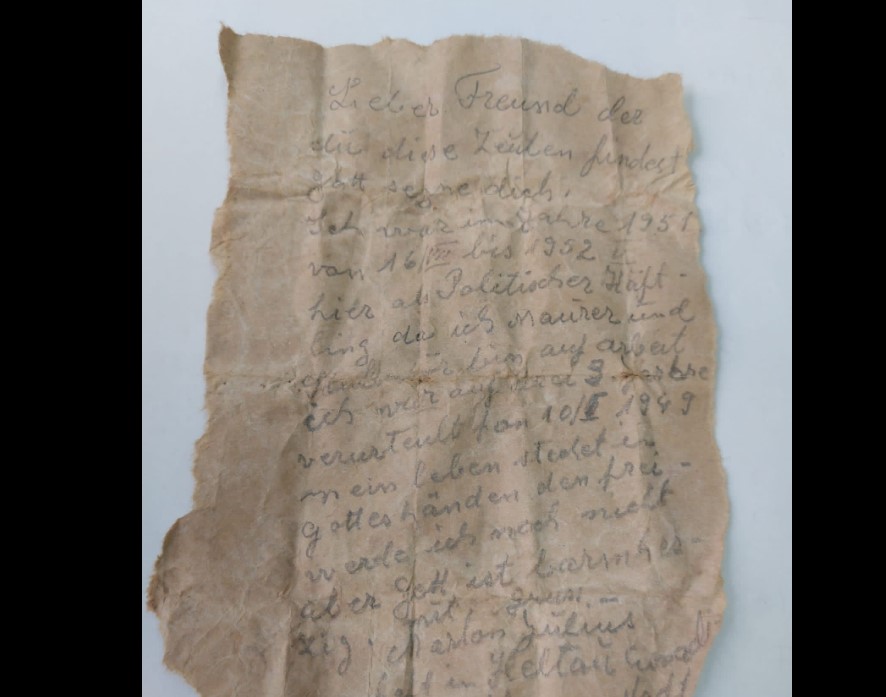 Lieber Freund der
du diese Zeilen findest
gott segne dich.
Ich war im Jahre 1951
von 16/III bis 1952 V
hier als Politischer Häft-
ling da ich Maurer und
bin auf arbeit
ich war auf 3
verurteilt von 10/I 1949
mein leben stehet in
gottes händen den frei-
werde ich noch nicht
aber gott ist barmher-
zig. mit gruss.-
Marton Julius
in Heltau